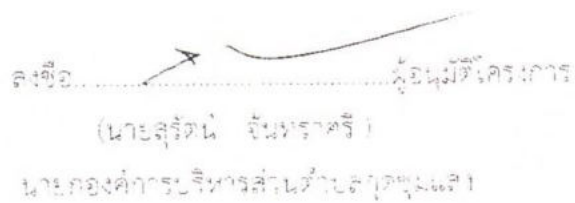 ลงชื่อ.......................................................ผู้อนุมัติโครงการ
(นายสุรัตน์ จันทราศรี)
นายกองค์การบริหารส่วนตำบลกุดชุมแสง